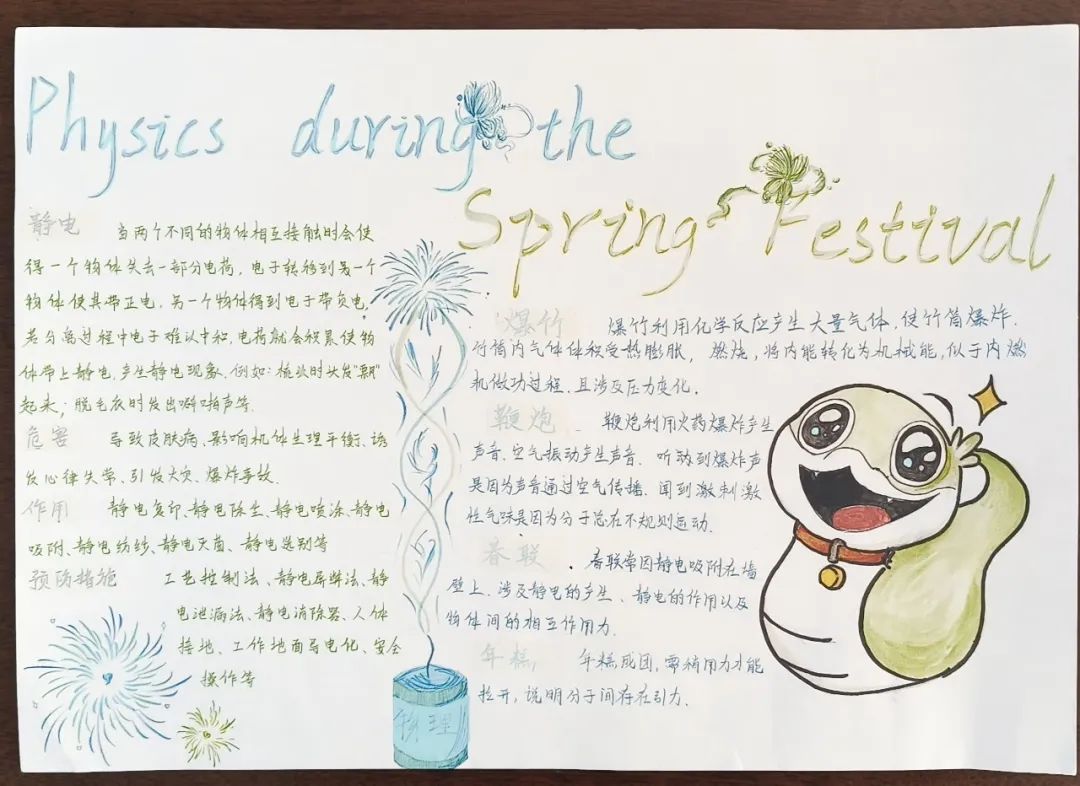 Physics during the
Spring Festival
静电 当两个不同的物体相互接触时会使
得一个物体失去一部分电荷，电子转移到另一个
物体使其带正电，另一个物体得到电子带负电，
若分离过程中电子难以中和，电荷就会积累使物
体带上静电，产生静电现象，例如：梳头时头发"飘"
起来；脱毛衣时发出噼啪声等.
危害 导致皮肤病、影响机体生理平衡、诱
发心律失常、引发火灾、爆炸事故.
作用 静电复印、静电除尘、静电喷涂、静电
吸附、静电纺纱、静电灭菌、静电选别等
预防措施 工艺控制法、静电屏蔽法、静
电泄漏法、静电消除器、人体
接地、工作地面导电化、安全
操作等
物理
爆竹 爆竹利用化学反应产生大量气体，使竹筒爆炸.
竹筒内气体体积受热膨胀， 燃烧，将内能转化为机械能，似于内燃
机做功过程.且涉及压力变化.
鞭炮 鞭炮利用火药爆炸产生
声音、空气振动产生声音. 听到爆炸声
是因为声音通过空气传播. 闻到刺激
性气味是因为分子总在不规则运动.
春联 春联常因静电吸附在墙
壁上.涉及静电的产生、静电的作用以及
物体间的相互作用力.
年糕 年糕成团，需稍用力才能
拉开，说明分子间存在引力.